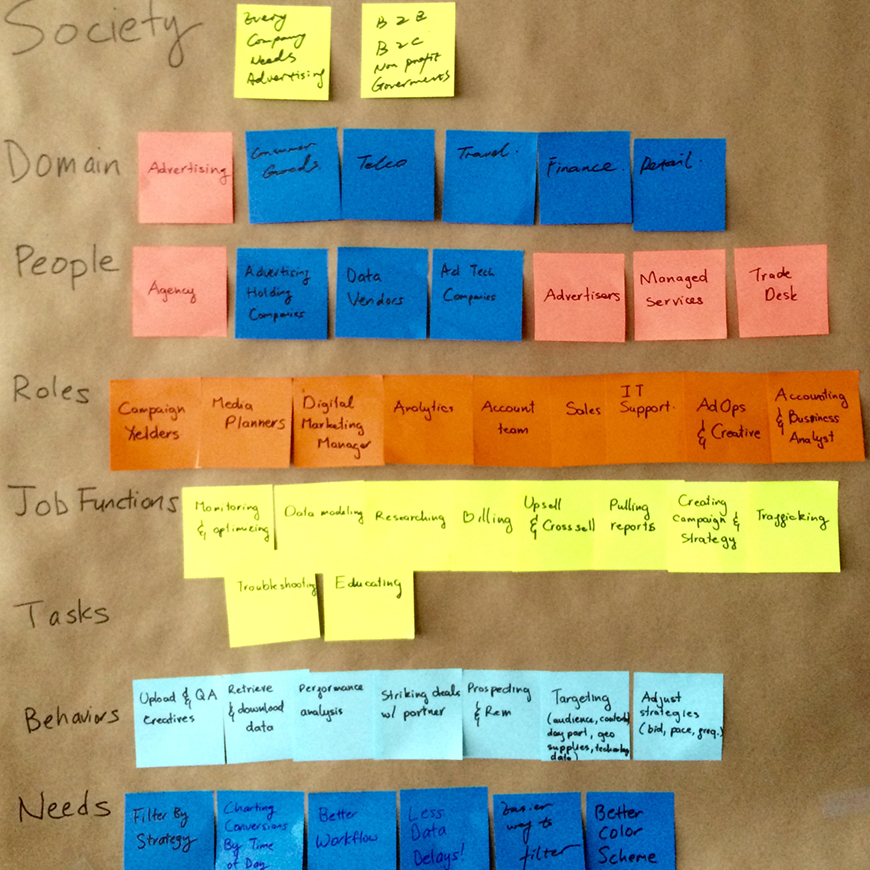 Society
Every
Company
Needs
Advertising
B2B
B2C
Non profit
Goverments
Domain
Advertising
Consumer
Goods.
Telco
Travel.
Finance.
Retail.
People
Agency
Advertising
Holding
Companies
Data
Vendors
Ad Tech
Companies
Advertisers
Managed
Services
Trade
Desk
Roles
Campaign
Yelders
Media
Planners
Digital
Marketing
Manager
Analytics
Account
team
Sales
IT
Support.
AdOps
& Creative
Accounting
& Business
Analyst
Job Functions
Monitoring
& optimizing
Data modeling
Researching
Billing
Upsell
& Cross sell
Pulling
reports
Creating
campaign &
Strategy
Trafficking
Troubleshooting
Educating
Tasks
Behaviors
Upload & QA
creatives
Retrieve
& download
data
Performance
analysis
Striking deals
w/ partner
Prospecting
& Rem
Targeting
(audience, context,
day part, geo
supplies, technology
data)
Adjust
strategies
(bid, pace, freq.)
Needs
Filter By
Strategy
Charting
Conversions
By Time
of Day
Better
Workflow
Less
Data
Delays!
Easier
way to
filter
Better
Color
Scheme